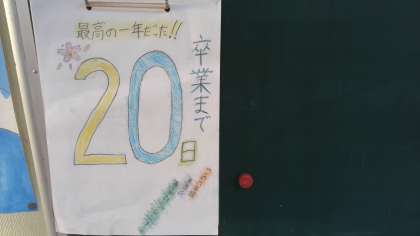 最高の一年だった!!
卒業まで
20日